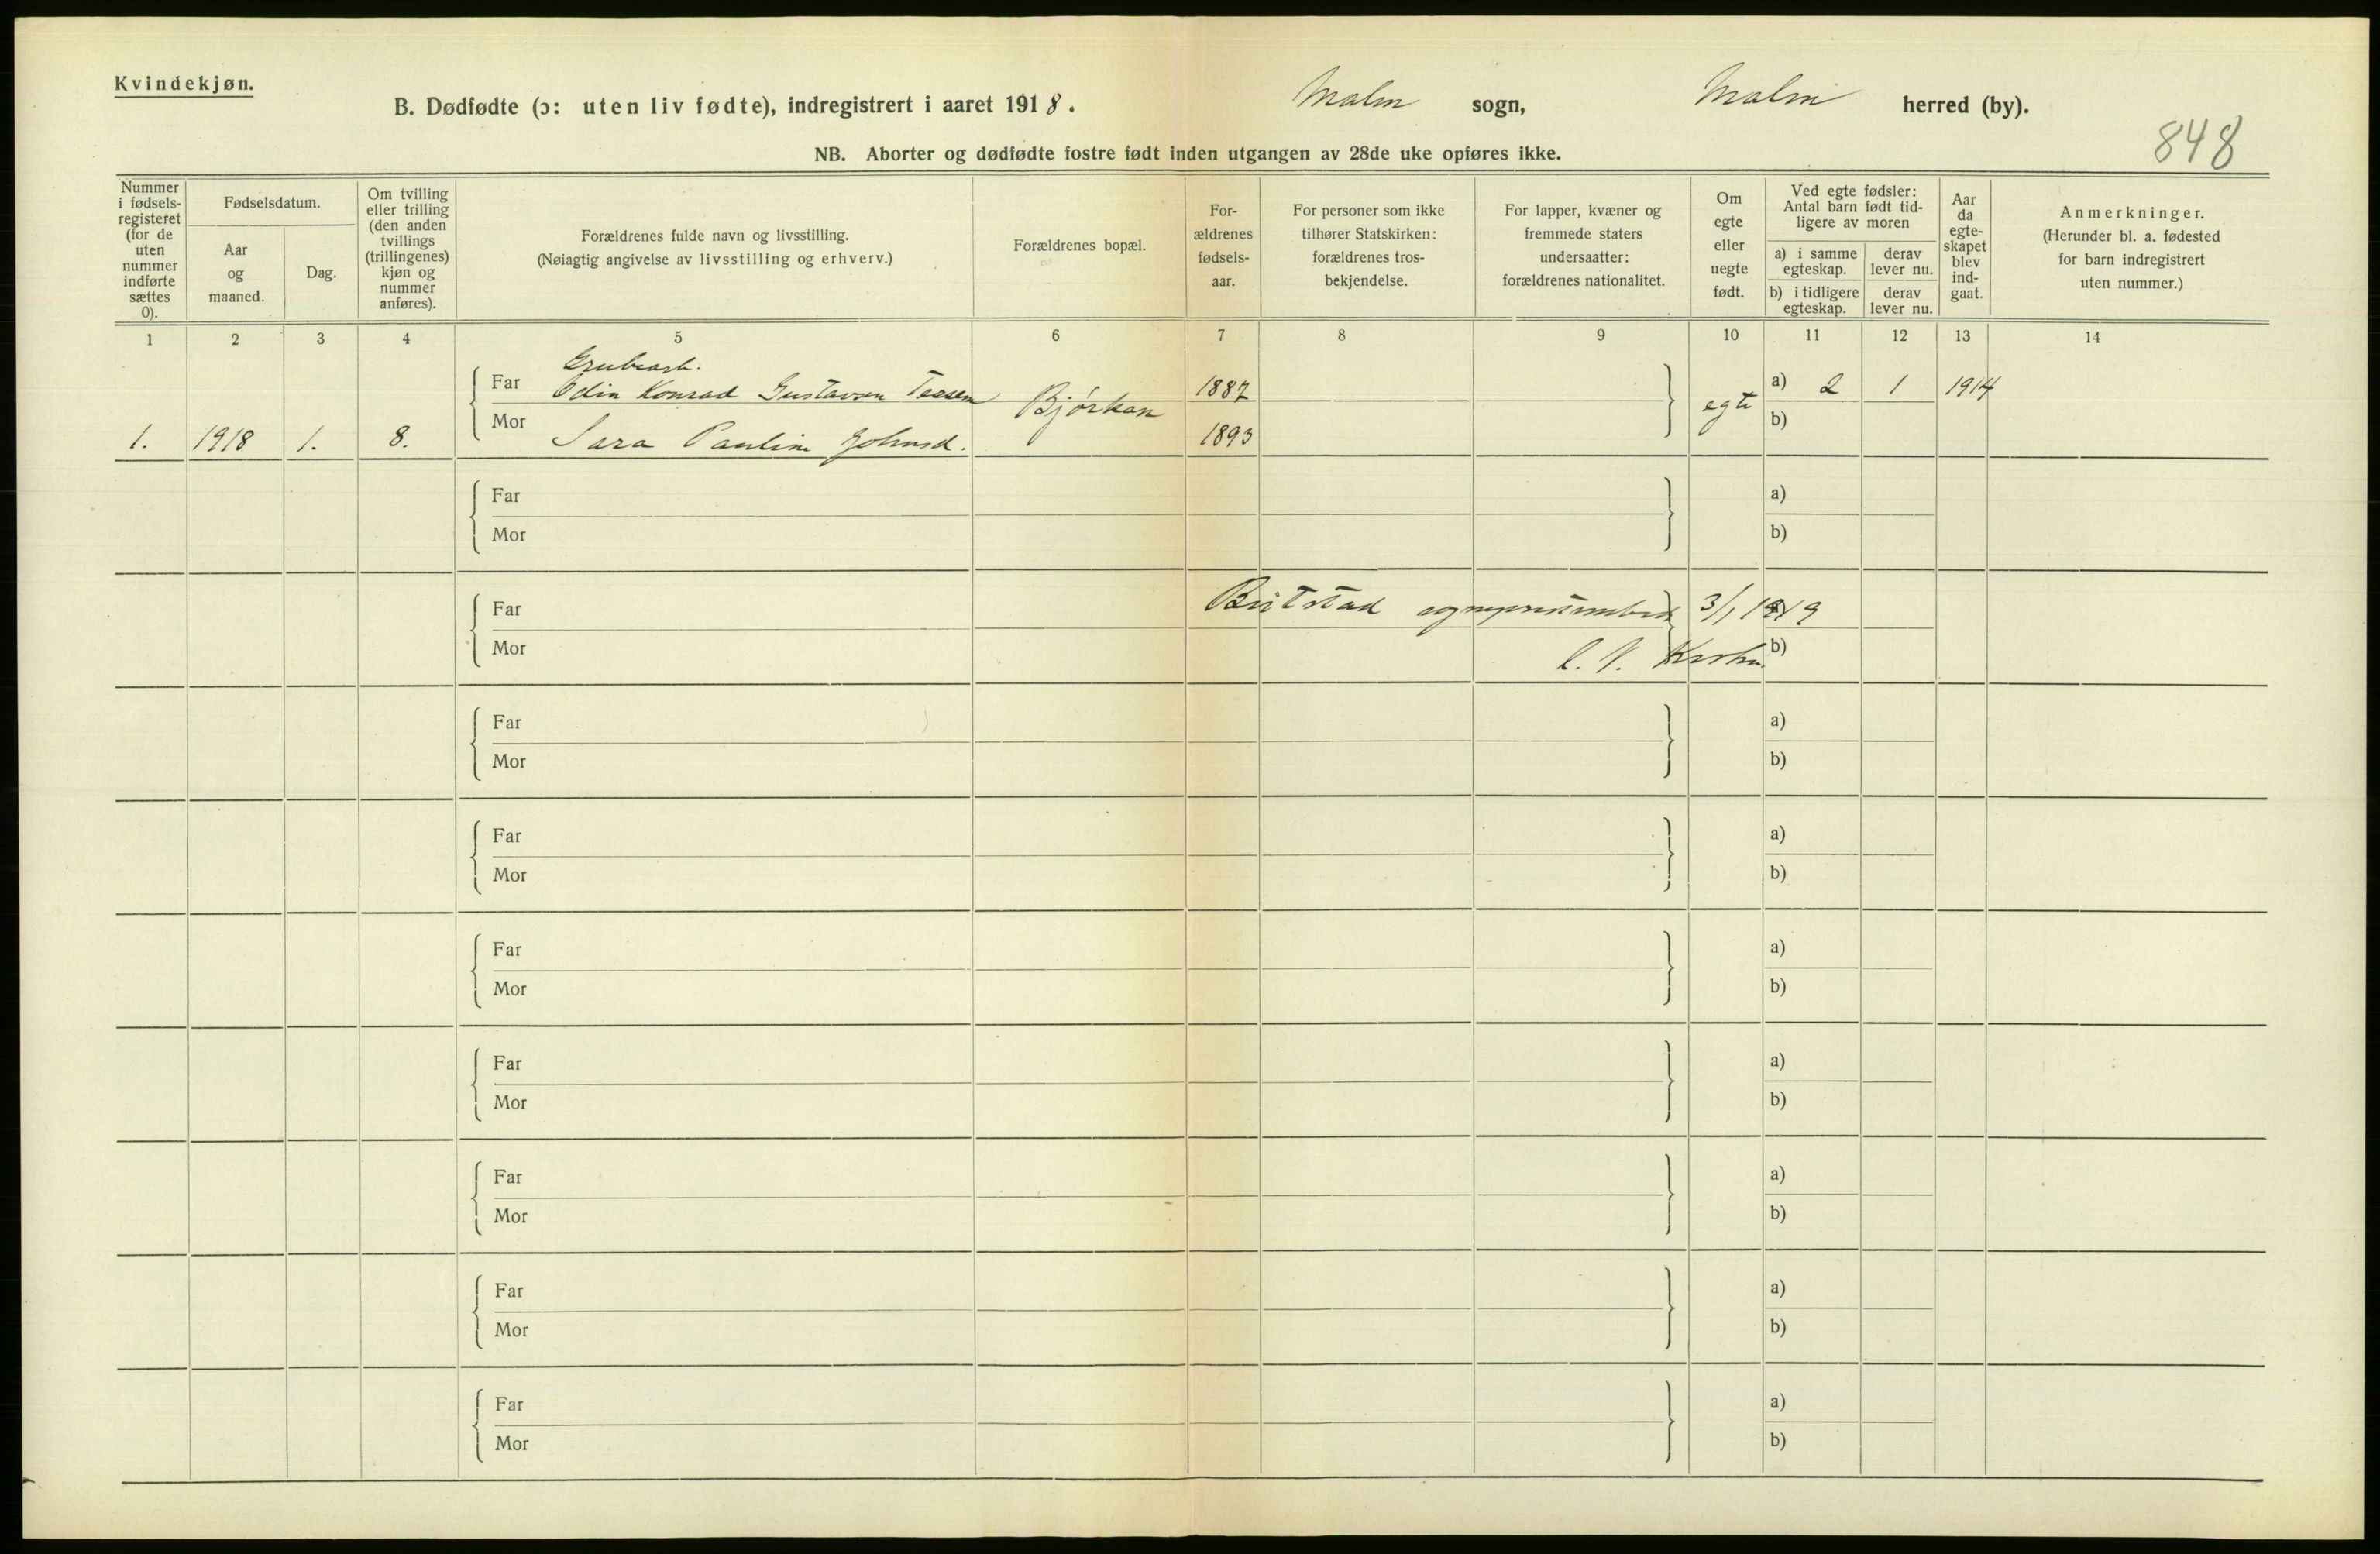 Kvindekjøn.
B. Dødfødte (ɔ: uten liv fødte), indregistrert i aaret 1918. Malm sogn, Malm herred (by).
848
NB. Aborter og dødfødte fostre født inden utgangen av 28de uke opføres ikke.
Nummer i fødsels-registeret (for de uten nummer indførte sættes 0).
Fødselsdatum.
Aar og maaned.
Dag.
Om tvilling eller trilling (den anden tvillings (trillingenes) kjøn og nummer anføres).
Forældrenes fulde navn og livsstilling.
(Nøiagtig angivelse av livsstilling og erhverv.)
Forældrenes bopæl.
For-ældrenes fødsels-aar.
For personer som ikke tilhører Statskirken: forældrenes tros-bekjendelse.
For lapper, kvæner og fremmede staters undersaatter: forældrenes nationalitet.
Om egte eller uegte født.
Ved egte fødsler: Antal barn født tid-ligere av moren
a) i samme egteskap.
derav lever nu.
b) i tidligere egteskap.
derav lever nu.
Aar da egte-skapet blev ind-gaat.
Anmerkninger.
(Herunder bl. a. fødested for barn indregistrert uten nummer.)
1 2 3 4 5 6 7 8 9 10 11 12 13 14
Grubearb.
Far Odin Konrad Gustavsen Bjørkan 1887 egte a) 2 1 1914
1. 1918 1. 8. Mor Sara Pauline Johnsd. 1893 b)
Far a)
Mor b)
Far Beitstad sogneprestembede 3/1 1919 a)
Mor b)
Far a)
Mor b)
Far a)
Mor b)
Far a)
Mor b)
Far a)
Mor b)
Far a)
Mor b)
Far a)
Mor b)
Far a)
Mor b)